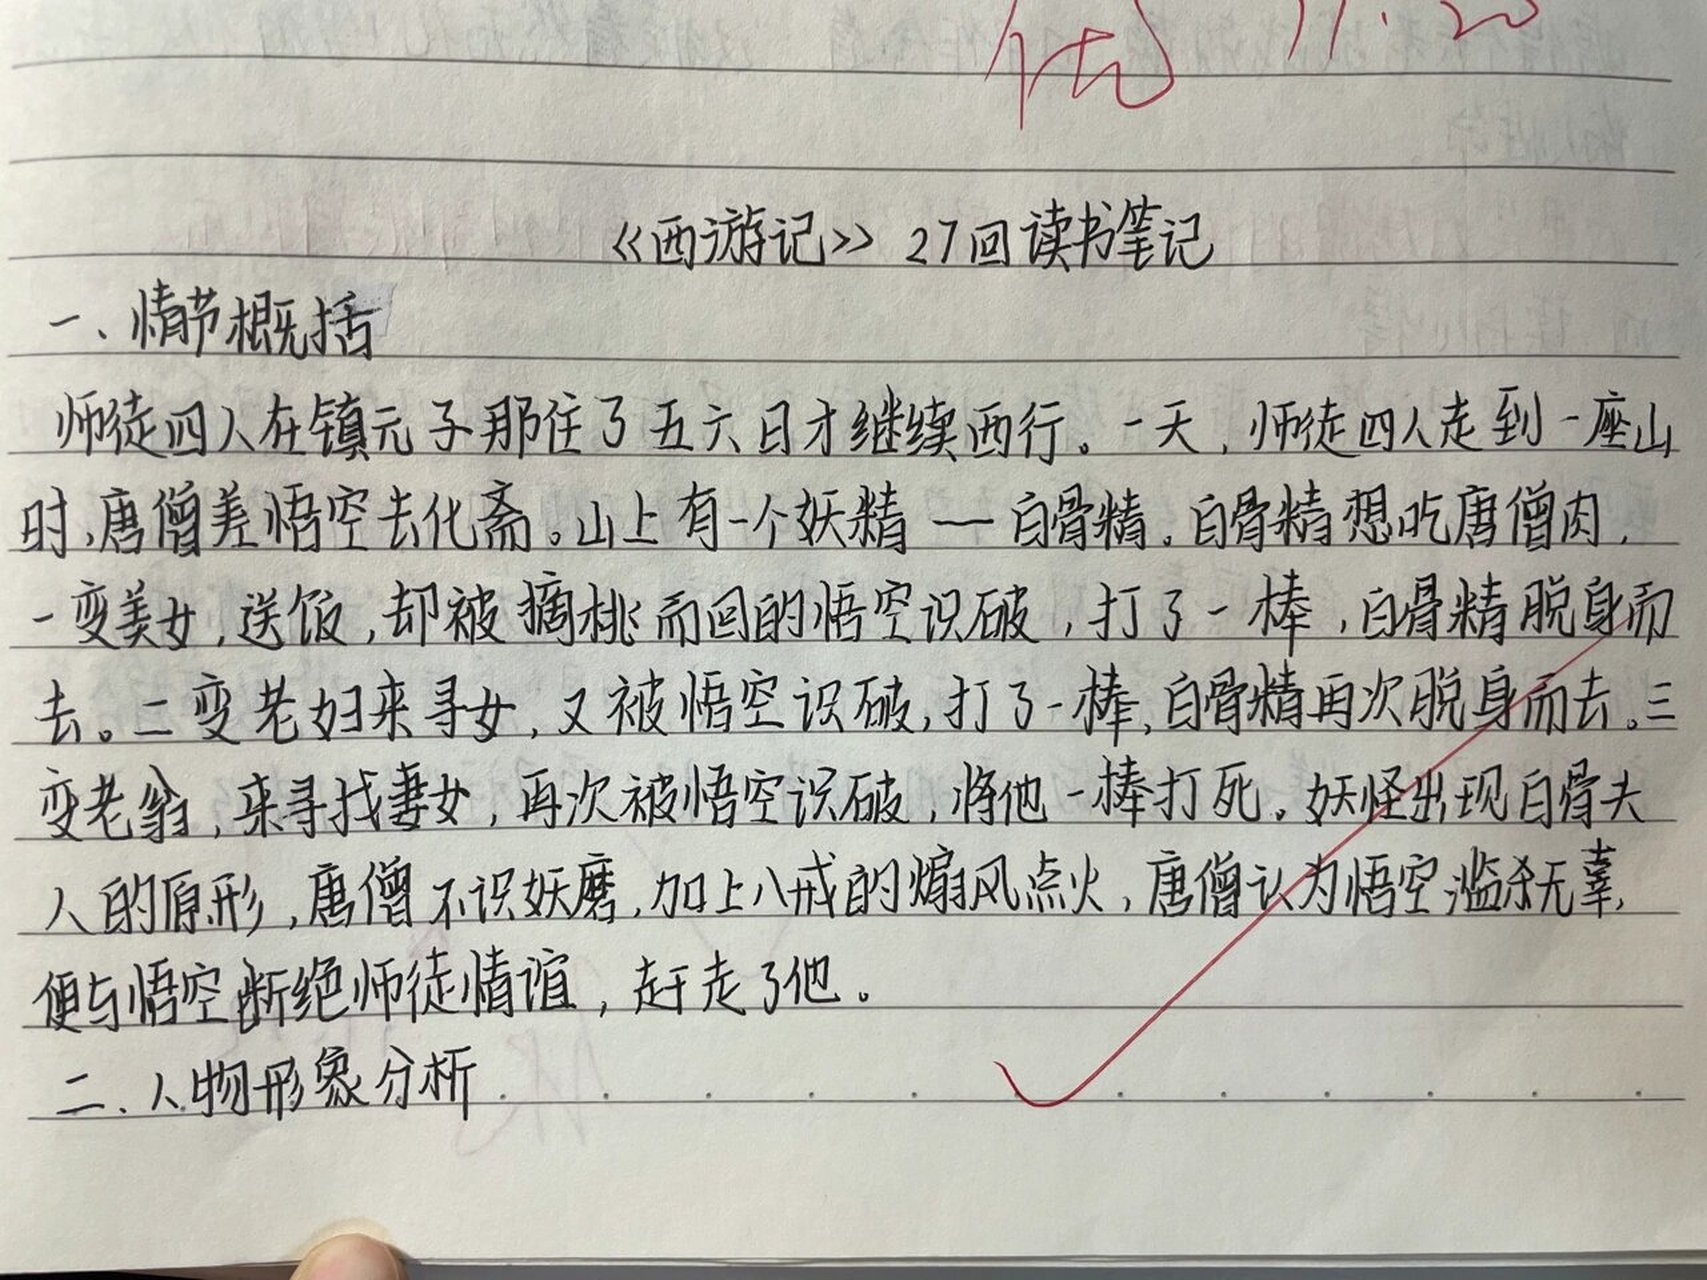 优 11.20
《西游记》27回读书笔记
一、情节概括
师徒四人在镇元子那住了五六日才继续西行。一天，师徒四人走到一座山
时，唐僧差悟空去化斋。山上有一个妖精——白骨精。白骨精想吃唐僧肉，
一变美女，送饭，却被摘桃而回的悟空识破，打了一棒，白骨精脱身而
去。二变老妇来寻女，又被悟空识破，打了一棒，白骨精再次脱身而去。三
变老翁，来寻找妻女，再次被悟空识破，将他一棒打死。妖怪出现白骨夫
人的原形，唐僧不识妖磨，加上八戒的煽风点火，唐僧认为悟空滥杀无辜，
便与悟空断绝师徒情谊，赶走了他。
二、人物形象分析